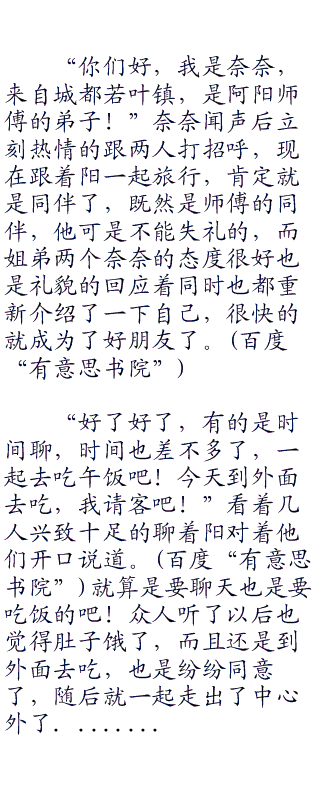 “你们好，我是奈奈，
来自城都若叶镇，是阿阳师
傅的弟子！”奈奈闻声后立
刻热情的跟两人打招呼，现
在跟着阳一起旅行，肯定就
是同伴了，既然是师傅的同
伴，他可是不能失礼的，而
姐弟两个奈奈的态度很好也
是礼貌的回应着同时也都重
新介绍了一下自己，很快的
就成为了好朋友了。(百度
“有意思书院”)
“好了好了，有的是时
间聊，时间也差不多了，一
起去吃午饭吧！今天到外面
去吃，我请客吧！”看着几
人兴致十足的聊着阳对着他
们开口说道。(百度“有意思
书院”)就算是要聊天也是要
吃饭的吧！众人听了以后也
觉得肚子饿了，而且还是到
外面去吃，也是纷纷同意
了，随后就一起走出了中心
外了．.......